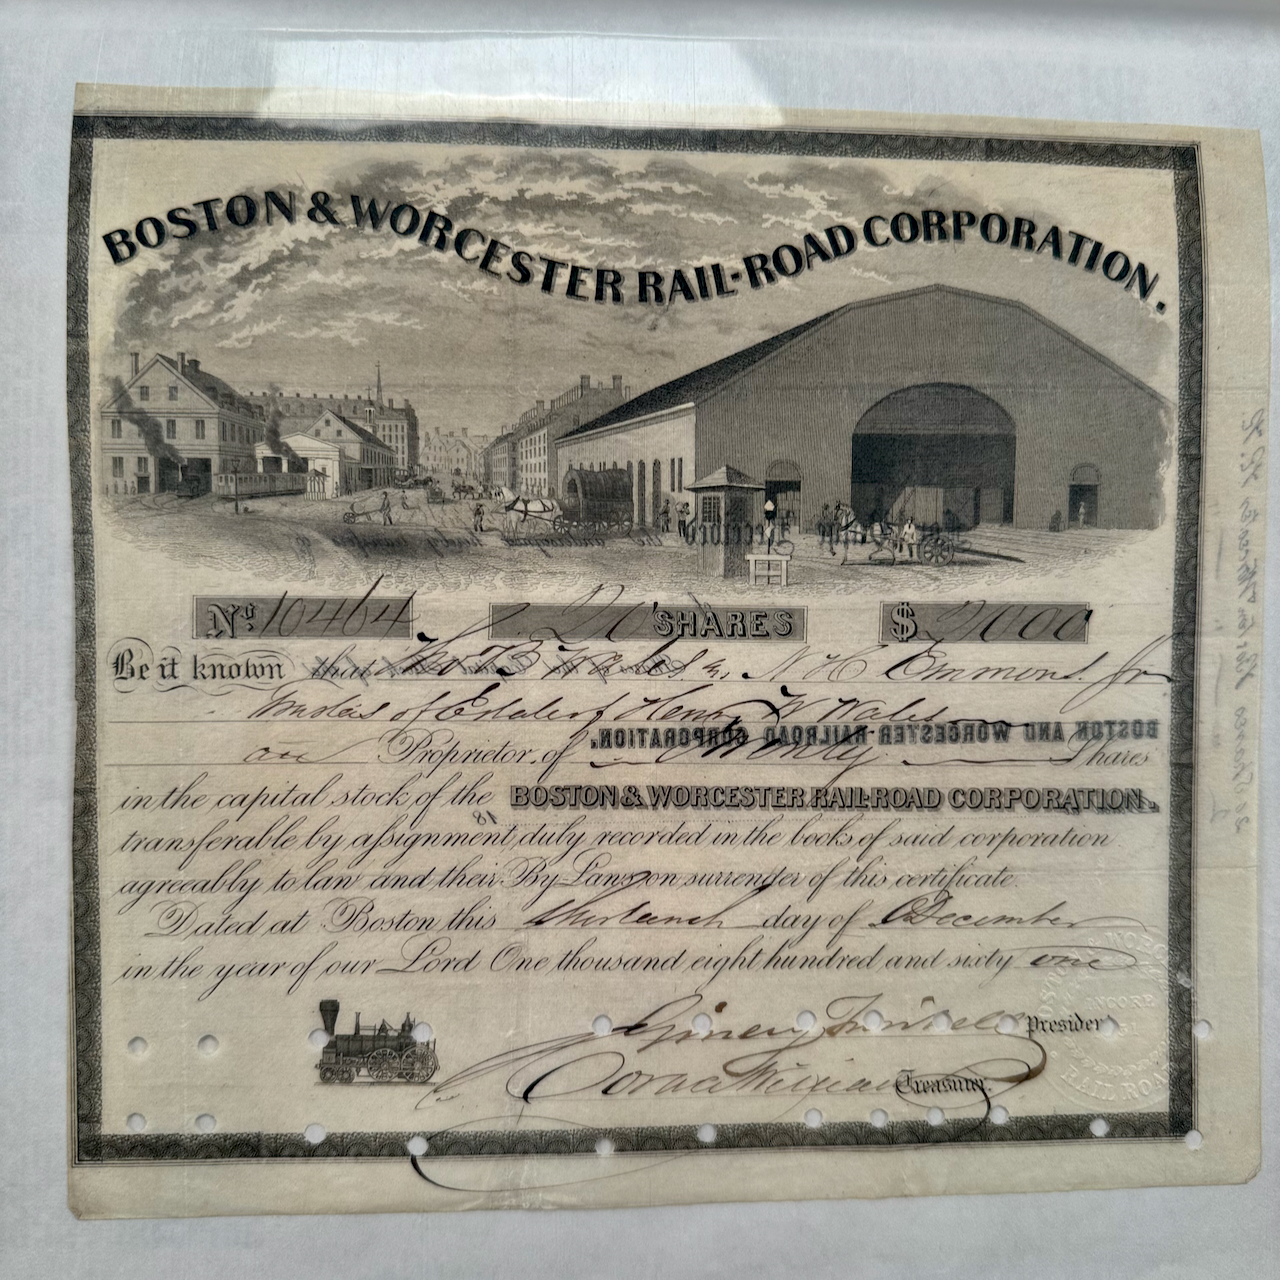 BOSTON & WORCESTER RAIL-ROAD CORPORATION.
No. 10464 20 SHARES $ 2000
Be it known that Thos B Wales & N H Emmons Jr
Trustees of Estate of Henry W Wales
are Proprietor of Twenty Shares
in the capital stock of the BOSTON & WORCESTER RAIL-ROAD CORPORATION.
transferable by assignment duly recorded in the books of said corporation
agreeably to law and their By-Laws on surrender of this certificate.
Dated at Boston this thirteenth day of December
in the year of our Lord One thousand eight hundred and sixty one
President
Treasurer.
BOSTON AND WORCESTER RAILROAD CORPORATION,
18